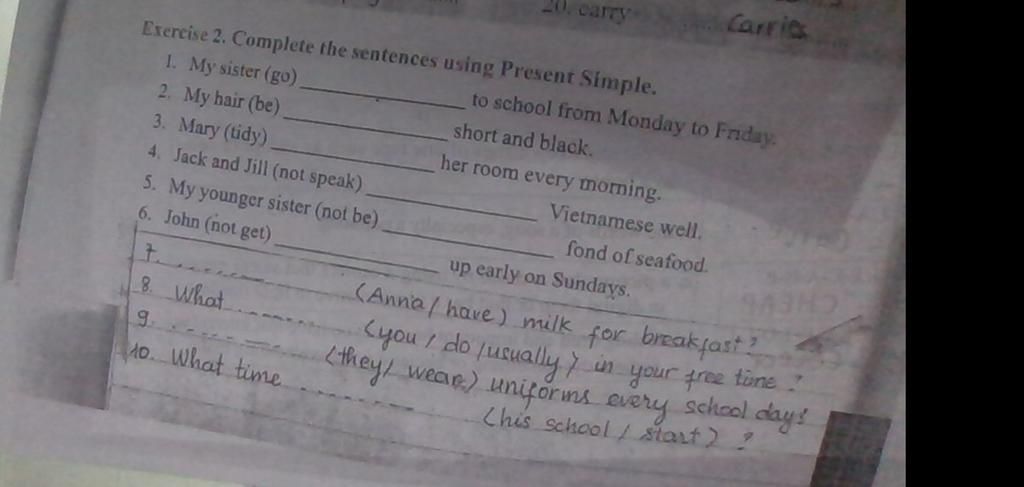 20. carry Carries
Exercise 2. Complete the sentences using Present Simple.
1. My sister (go) ____________ to school from Monday to Friday.
2. My hair (be) ____________ short and black.
3. Mary (tidy) ____________ her room every morning.
4. Jack and Jill (not speak) ____________ Vietnamese well.
5. My younger sister (not be) ____________ fond of seafood.
6. John (not get) ____________ up early on Sundays.
7. ............ (Anna / have) milk for breakfast?
8. What ............ (you / do / usually) in your free time?
9. ............ (they / wear) uniforms every school day?
10. What time ............ (his school / start)?
CHEAP